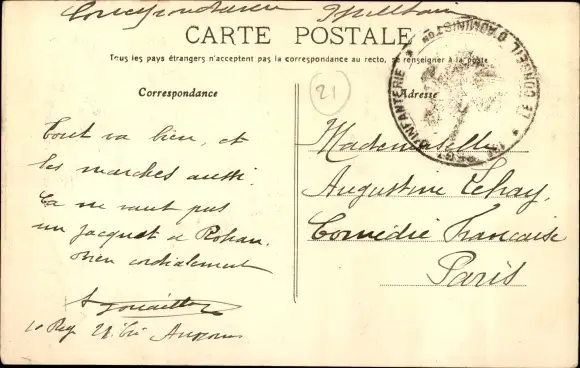 Correspondance Militaire
CARTE POSTALE
Tous les pays étrangers n'acceptent pas la correspondance au recto, se renseigner à la poste
Correspondance
21
Adresse
D'INFANTERIE * LE CONSEIL D'ADMINISTRATION *
Tout va bien, et
les marches aussi.
Ça ne vaut pas
un Jacquet de Rohan.
bien cordialement
Mademoiselle
Augustine Lehay,
Comédie Française
Paris
10 Reg 28 Cie Auxonne